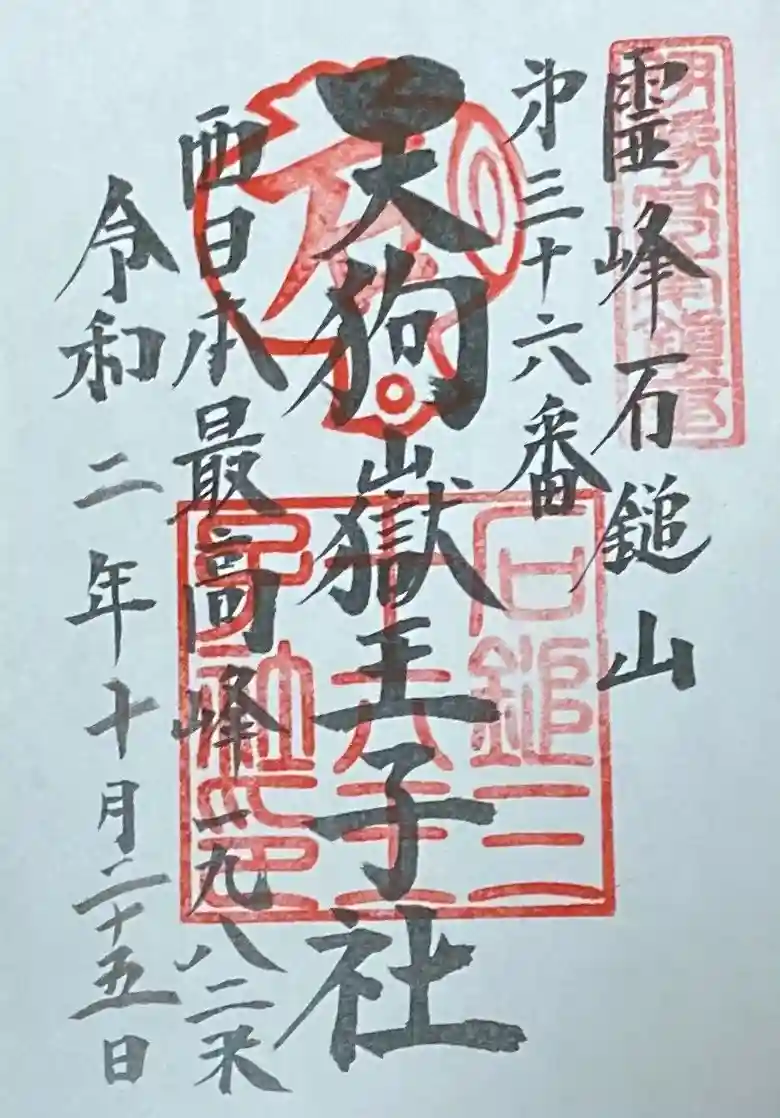 霊峰石鎚山
第三十六番
天狗嶽王子社
西日本最高峰一九八二米
令和二年十月二十五日
石鎚三
十六王
子社之印